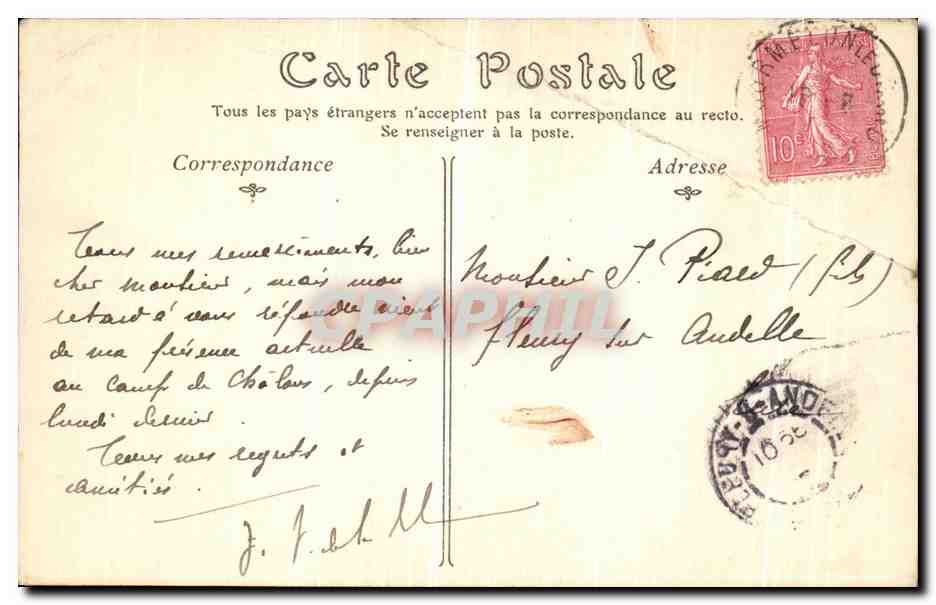 Carte Postale
Tous les pays étrangers n'acceptent pas la correspondance au recto.
Se renseigner à la poste.
Correspondance
Adresse
10c
Tous mes remerciements, bien
cher Monsieur, mais mon
retard à vous répondre vient
de ma présence actuelle
au camp de Châlons, depuis
lundi dernier.
Tous mes regrets et
amitiés.
Monsieur J. Piard (fils)
Fleury sur Andelle
FLEURY-S-ANDE
CPAPHIL